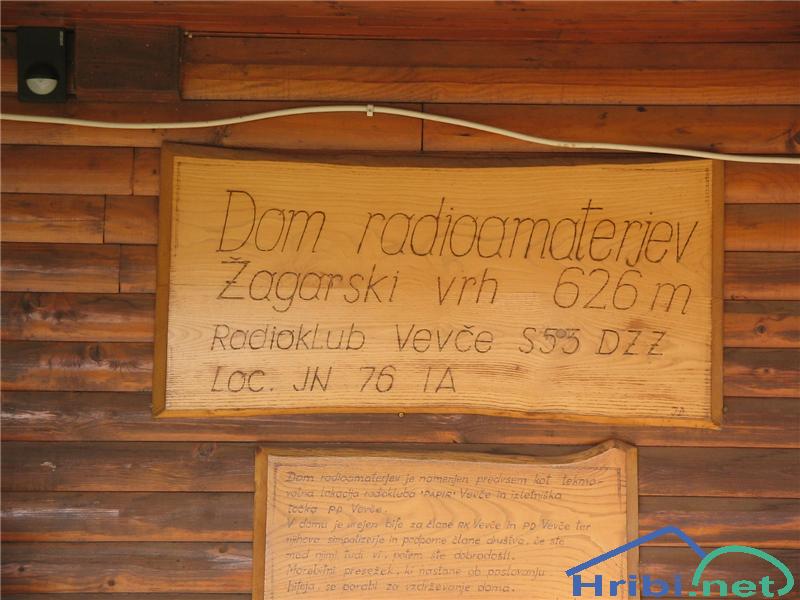 Dom radioamaterjev
Žagarski vrh 626 m
Radioklub Vevče S53 DZZ
Loc. JN 76 IA
Dom radioamaterjev je namenjen predvsem kot tekmo-
valna lokacija radiokluba "PAPIR" Vevče in izletniška
točka PD Vevče.
V domu je urejen bife za člane RK Vevče in PD Vevče ter
njihove simpatizerje in podporne člane društva, če ste
med njimi tudi vi, potem ste dobrodošli.
Morebitni presežek, ki nastane ob poslovanju
bifeja, se porabi za vzdrževanje doma.
Hribi.net